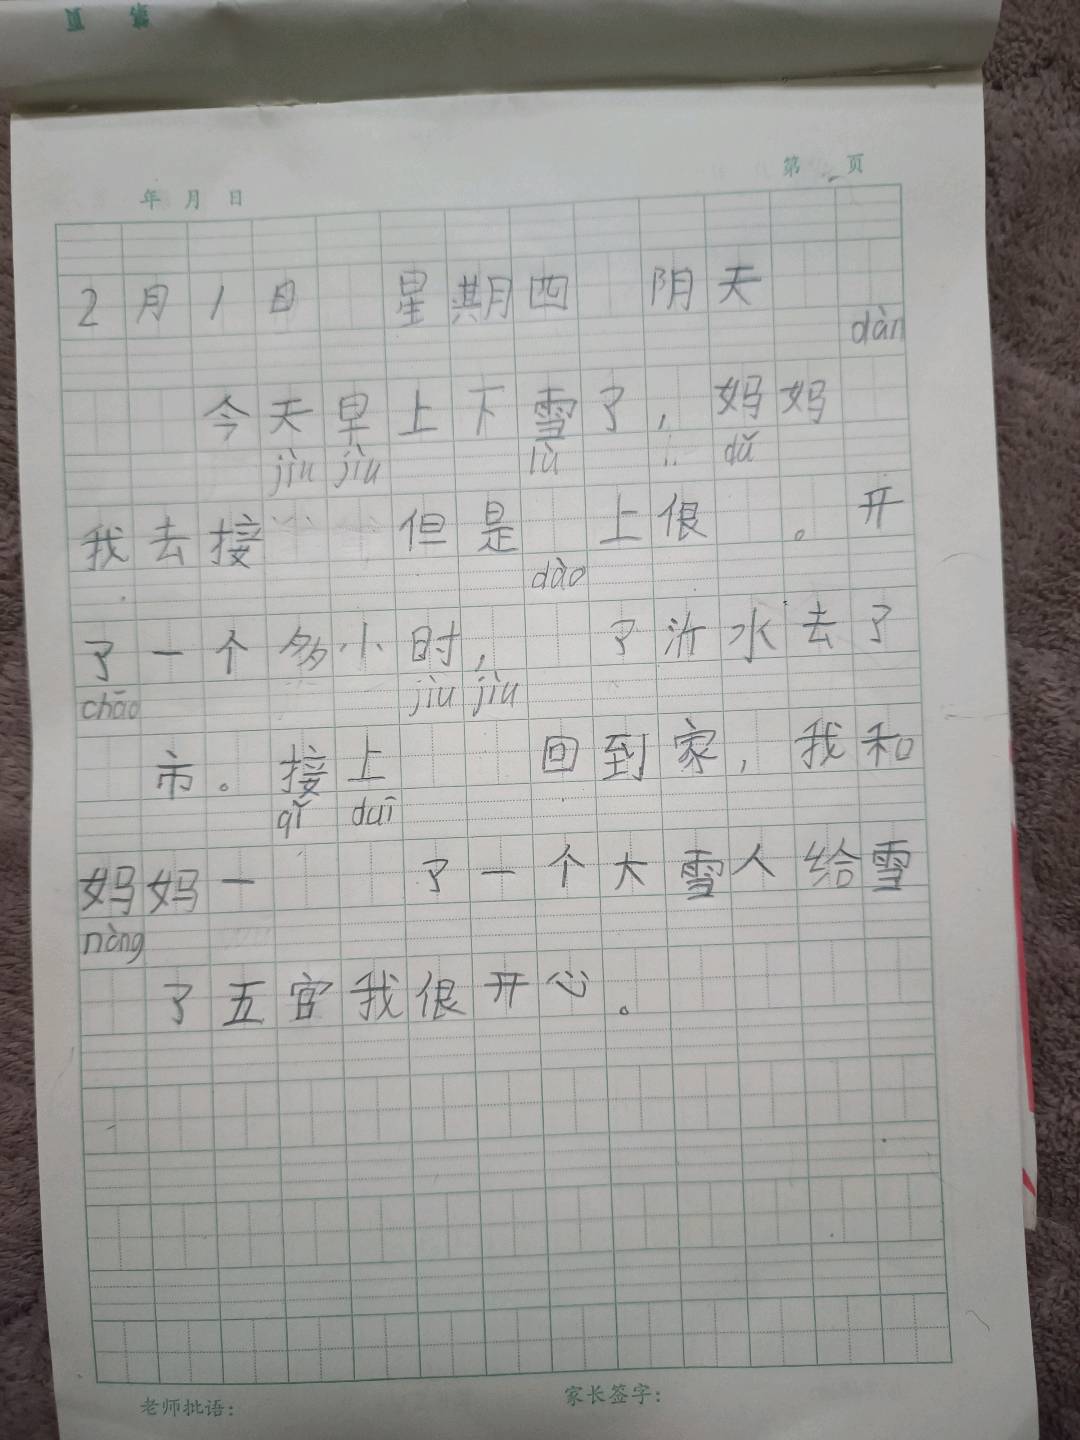 第 页
年 月 日
第 页
2月1日 星期四 阴天
dàn
今天早上下雪了，妈妈
jìu jìu lù dǔ
我去接 但是 上很 。开
dào
了一个多小时， 了沂水去了
chāo jìu jìu
市。接上 回到家，我和
qǐ duī
妈妈一 了一个大雪人给雪
nòng
了五官我很开心。
老师批语：
家长签字：